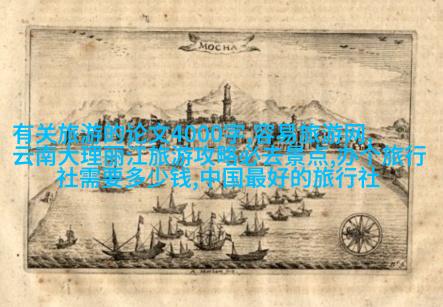 MOCHA
有关旅游的论文4000字,容易旅游网
云南大理丽江旅游攻略必去景点,办个旅行
社需要多少钱,中国最好的旅行社